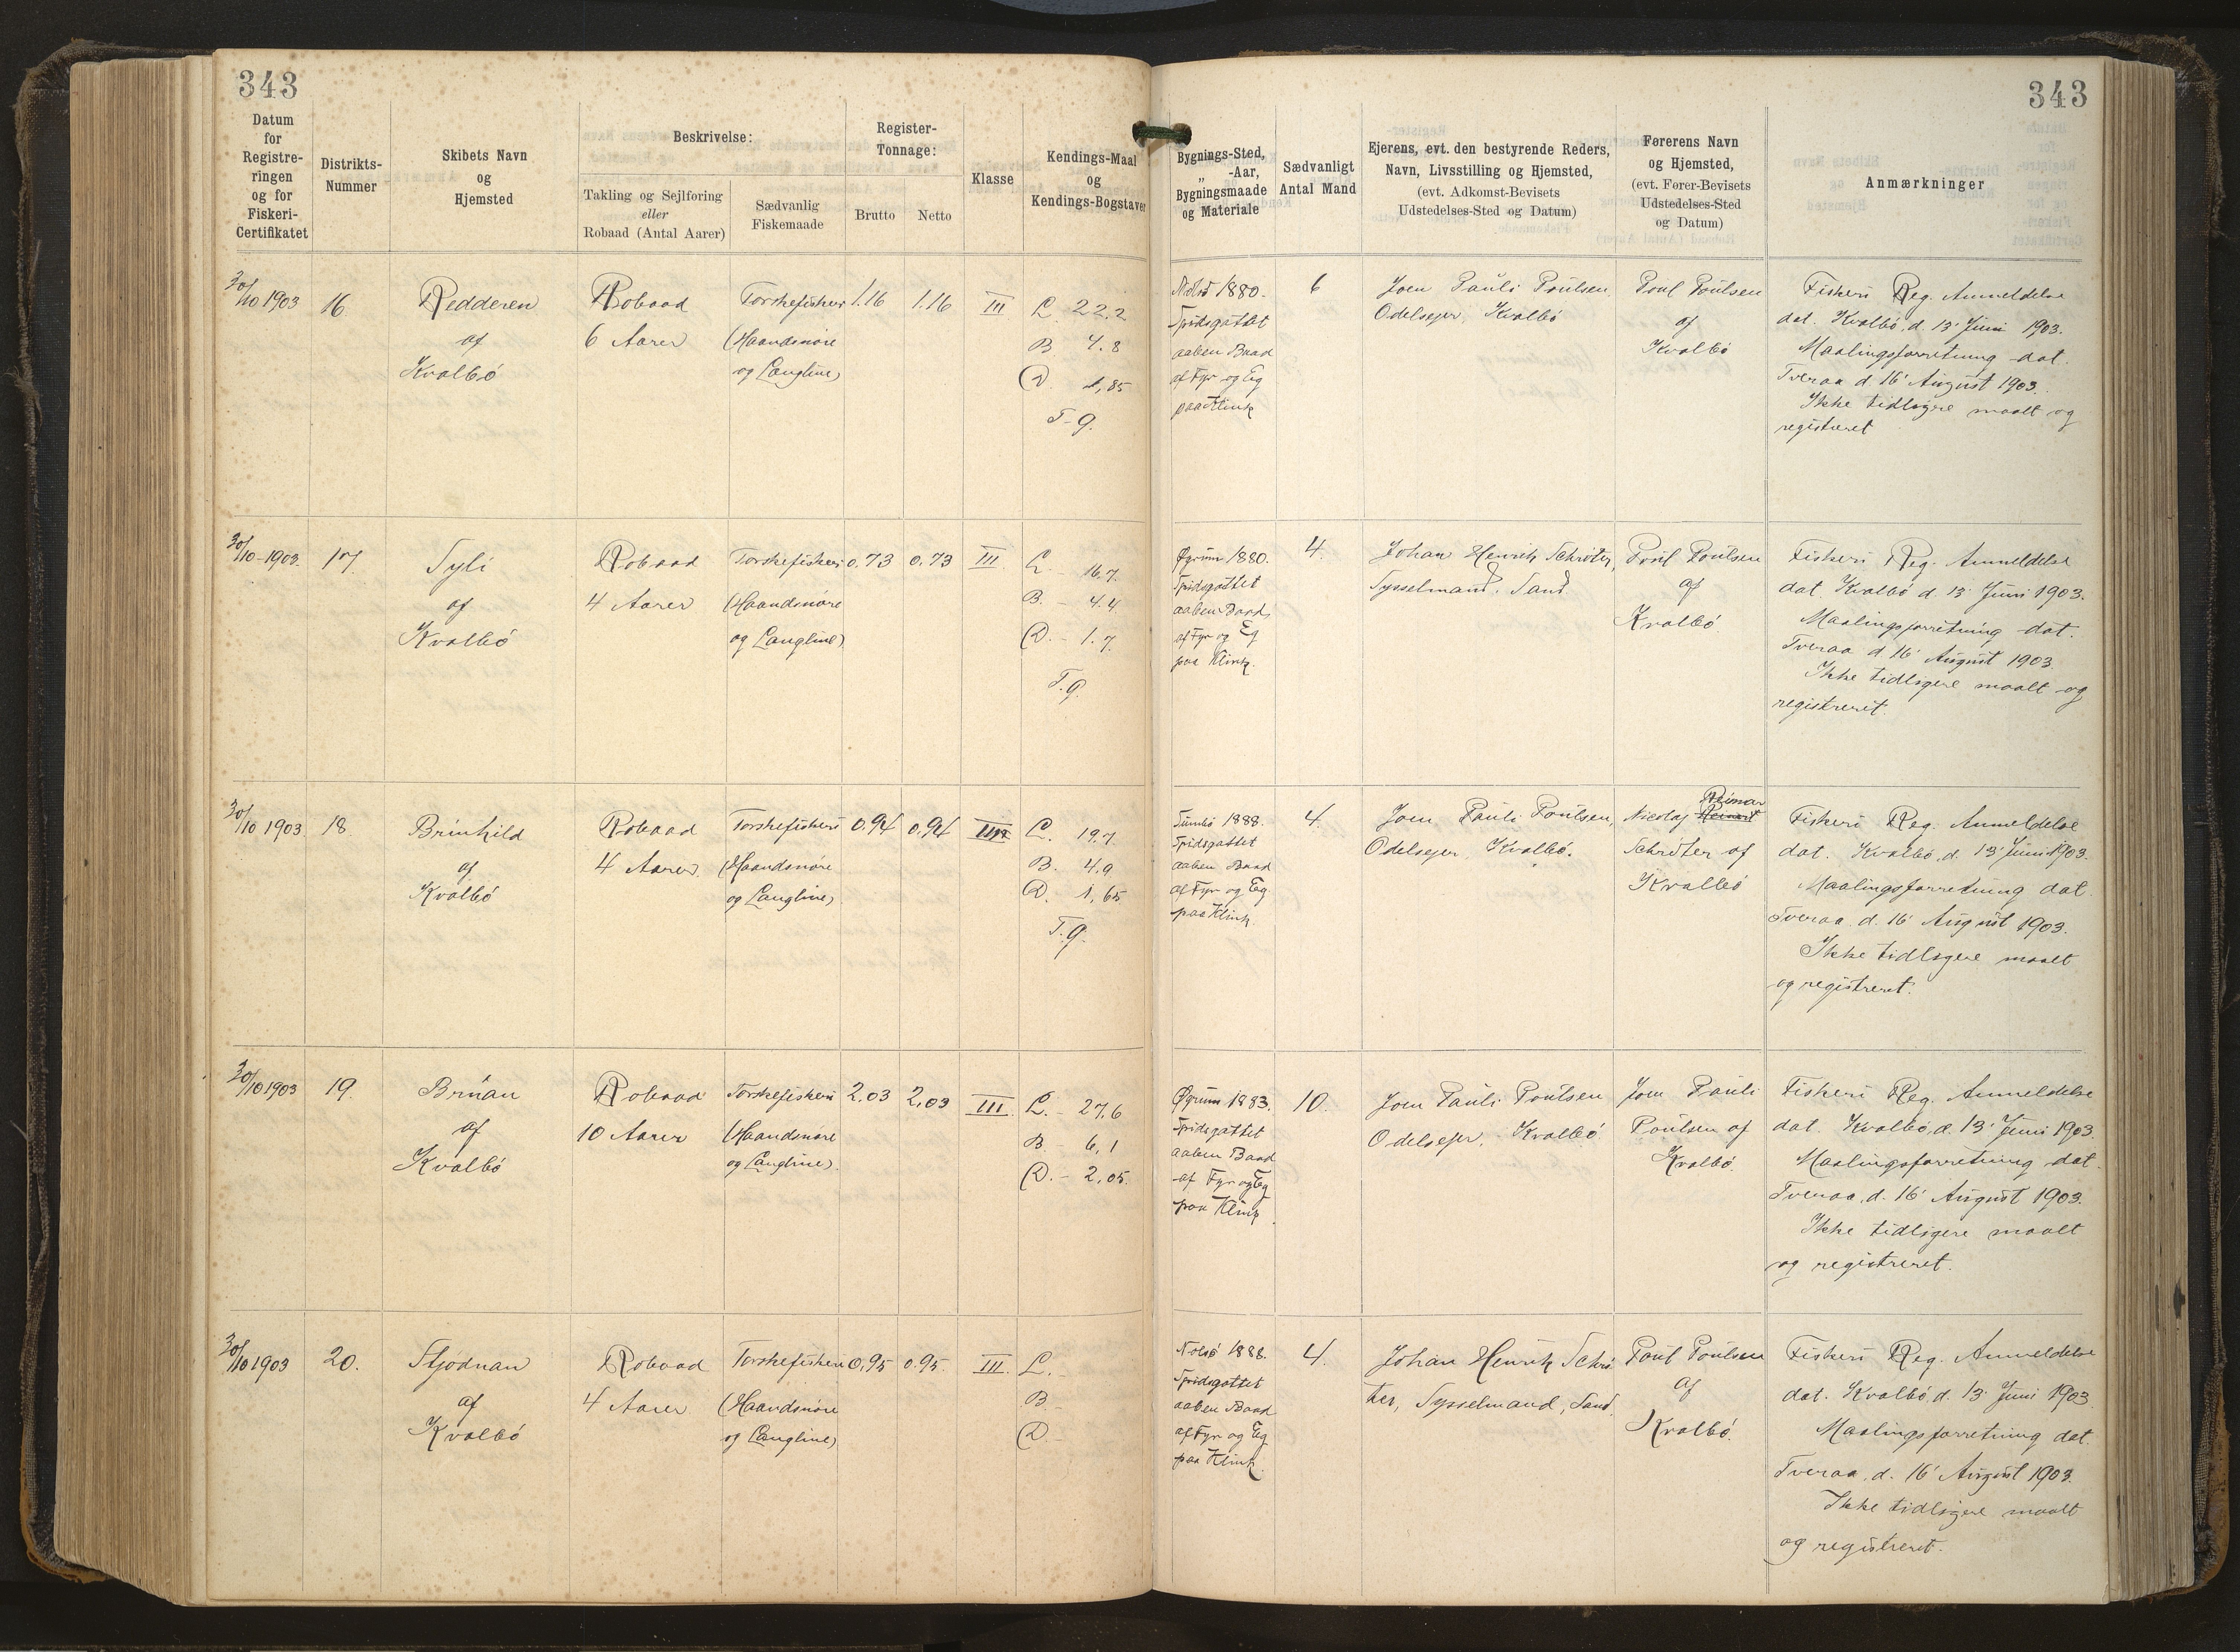 343
343
Datum
for
Registre-
ringen
og for
Fiskeri-
Certifikatet
Distrikts-
Nummer
Skibets Navn
og
Hjemsted
Beskrivelse:
Takling og Sejlføring
eller
Robaad (Antal Aarer)
Sædvanlig
Fiskemaade
Register-
Tonnage:
Brutto
Netto
Klasse
Kendings-Maal
og
Kendings-Bogstaver
Bygnings-Sted,
„ -Aar,
Bygningsmaade
og Materiale
Sædvanligt
Antal Mand
Ejerens, evt. den bestyrende Reders,
Navn, Livsstilling og Hjemsted,
(evt. Adkomst-Bevisets
Udstedelses-Sted og Datum)
Førerens Navn
og Hjemsted,
(evt. Fører-Bevisets
Udstedelses-Sted
og Datum)
Anmærkninger
30/10 1903
16
Redderen
af
Kvalbö
Robaad
6 Aarer
Torskefiskeri
(Haandsnöre
og Langline)
1.16
1.16
III
L. 22,2
B 4.8
D. 1,85
T. g.
Nolsö 1880.
Spidsgattet
aaben Baad
af Fyr og Eg
paa Klink
6
Joen Pauli Poulsen,
Odelsejer, Kvalbö
Poul Poulsen
af
Kvalbö
Fiskeri Reg. Anmeldelse
dat. Kvalbö, d. 13' Juni 1903.
Maalingsforretning dat.
Tveraa d. 16' August 1903.
Ikke tidligere maalt og
registreret
30/10-1903.
17.
Syli
af
Kvalbö
Robaad
4 Aarer
Torskefiskeri
(Haandsnöre
og Langline)
0.73
0.73
III
L. - 16,7.
B. - 4.4
D. - 1.7
T. g.
Øgrum 1880.
Spidsgattet
aaben Baad,
af Fyr og Eg
paa Klink.
4.
Johan Henrik Schröter,
Sysselmand, Sand
Poul Poulsen
af
Kvalbö.
Fiskeri Reg. Anmeldelse
dat. Kvalbö d. 13' Juni 1903.
Maalingsforretning dat.
Tveraa d. 16' August 1903.
Ikke tidligere maalt og
registreret.
30/10 1903
18.
Brünhild
af
Kvalbö
Robaad
4 Aarer.
Torskefiskeri
(Haandsnöre
og Langline)
0.94
0,94
III
L. 19,7
B. 4,9
D. 1,65
T. g.
Sumbö 1888.
Spidsgattet
aaben Baad
af Fyr og Eg
paa Klink.
4.
Joen Pauli Poulsen,
Odelsejer, Kvalbö.
Reimar
Nicolaj Reinart
Schröter af
Kvalbö
Fiskeri Reg. Anmeldelse
dat. Kvalbö, d. 13' Juni 1903.
Maalingsforretning dat.
Tveraa, d. 16' August 1903.
Ikke tidligere maalt
og registreret.
30/10 1903
19.
Brúan
af
Kvalbö
Robaad
10 Aarer
Torskefiskeri
(Haandsnöre
og Langline).
2.03
2,03
III.
L. - 27,6
B - 6,1
D. - 2,05.
Øgrum 1883.
Spidsgattet
aaben Baad
af Fyr og Eg
paa Klink.
10.
Joen Pauli Poulsen
Odelsejer, Kvalbö
Joen Pauli
Poulsen af
Kvalbö.
Fiskeri Reg. Anmeldelse
dat. Kvalbö, d. 13' Juni 1903.
Maalingsforretning dat.
Tveraa, d. 16' August 1903.
Ikke tidligere maalt
og registreret.
30/10 1903
20.
Stjödnan
af
Kvalbö
Robaad
4 Aarer
Torskefiskeri
(Haandsnöre
og Langline)
0,95
0.95
III.
L. -
B -
D. -
Nolsö 1888.
Spidsgattet
aaben Baad
af Fyr og Eg
paa Klink.
4.
Johan Henrik Schrö-
ter, Sysselmand, Sand.
Poul Poulsen
af
Kvalbö.
Fiskeri Reg. Anmeldelse
dat. Kvalbö, d. 13' Juni 1903.
Maalingsforretning dat.
Tveraa, d. 16' August 1903.
Ikke tidligere maalt
og registreret.